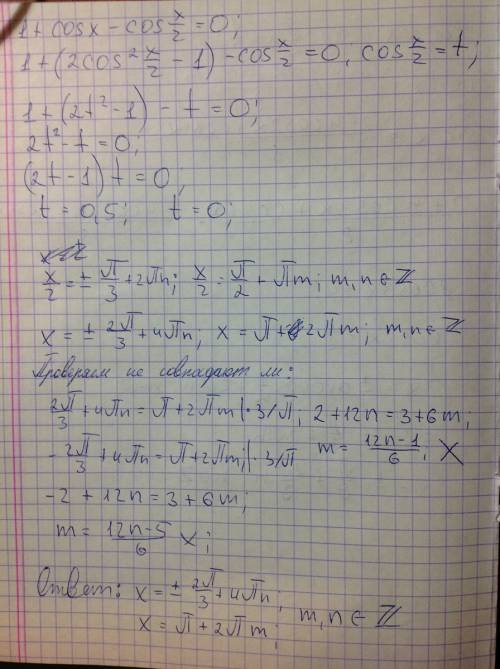 1 + cos x − cos x/2 = 0;
1 + (2cos² x/2 − 1) − cos x/2 = 0, cos x/2 = t;
1 + (2t² − 1) − t = 0;
2t² − t = 0;
(2t − 1) t = 0;
t = 0,5; t = 0;
x/2 = ± π/3 + 2πn; x/2 = π/2 + πm; m,n ∈ ℤ
x = ± 2π/3 + 4πn; x = π + 2πm; m,n ∈ ℤ
Проверяем не совпадают ли:
2π/3 + 4πn = π + 2πm |· 3/π; 2 + 12n = 3 + 6m;
− 2π/3 + 4πn = π + 2πm; |· 3/π m = (12n − 1)/6; X
−2 + 12n = 3 + 6m;
m = (12n − 5)/6 X;
Ответ: x = ± 2π/3 + 4πn;
x = π + 2πm; m,n ∈ ℤ